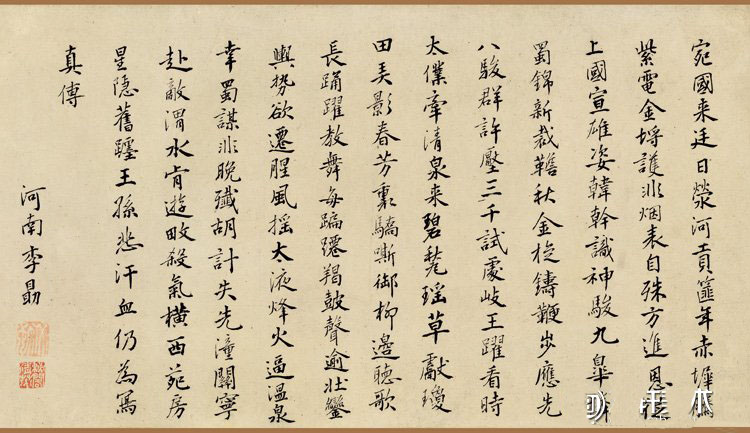 宛國来廷日滎河貢篚年赤墀騰
紫電金埒護非烟表自殊方進恩從
上國宣雄姿韓幹識神駿九皋
蜀錦新裁韉秋金旋鑄鞭步應先
八駿群許壓三千試處岐王躍看時
太僕牽清泉来碧甃瑶草獻瓊
田美影春芳裏驕嘶御柳邊聽歌
長踊躍教舞每蹁躚羯鼓聲逾壯鑾
輿勢欲遷腥風搖太液烽火逼温泉
幸蜀謀非晚殲胡計失先潼關寧
赴敵渭水肯遊畋殺氣橫西苑房
星隱舊躔王孫悲汗血仍為寫
真傳
河南李勗